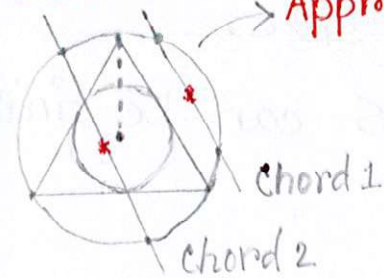 Appro
chord 1
chord 2